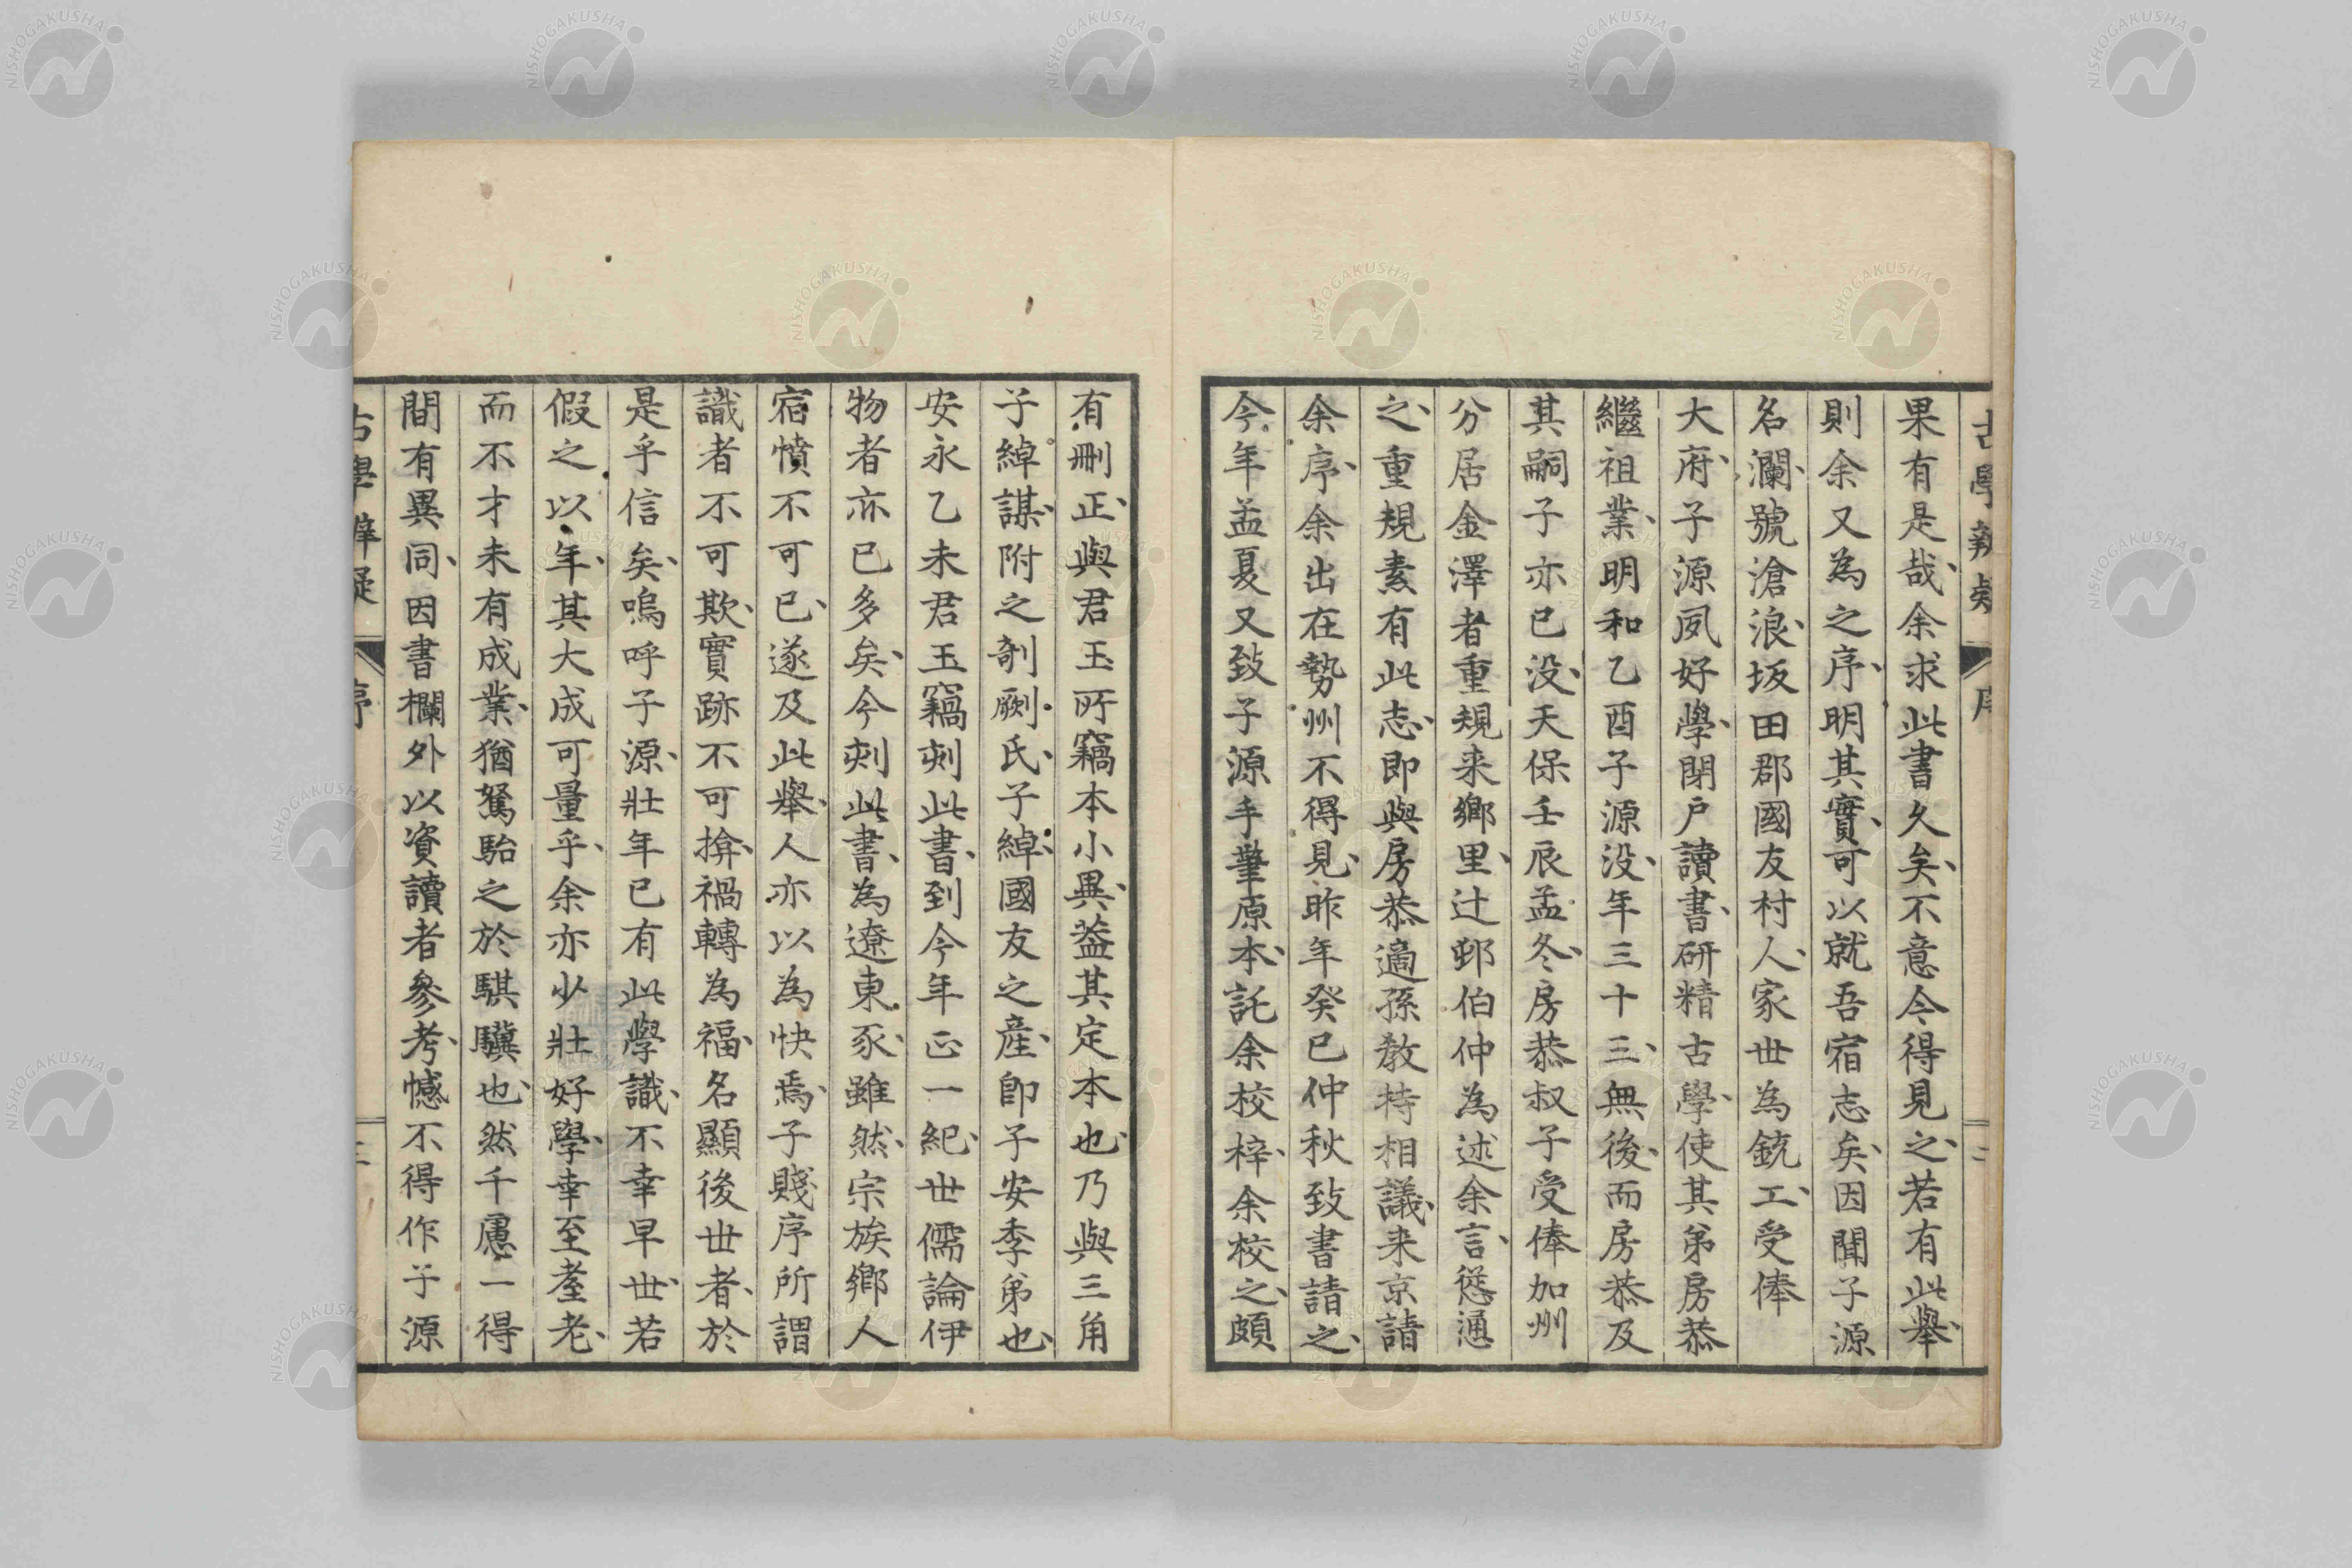 果有是哉余求此書久矣不意今得見之若有此舉
則余又為之序明其實可以就吾宿志矣因聞子源
名瀾號滄浪坂田郡國友村人家世為銃工受俸
大府子源夙好學閉戶讀書研精古學使其弟房恭
繼祖業明和乙酉子源没年三十三無後而房恭及
其嗣子亦已没天保壬辰孟冬房恭叔子受俸加州
分居金澤者重規来鄉里辻邨伯仲為述余言慫通
之重規素有此志即與房恭適孫教持相議来京請
余序余出在勢州不得見昨年癸巳仲秋致書請之
今年孟夏又致子源手筆原本託余校梓余校之頗
有刪正與君玉所竊本小異葢其定本也乃與三角
子綽謀附之剞劂氏子綽國友之產卽子安季弟也
安永乙未君玉竊刻此書到今年正一紀世儒論伊
物者亦已多矣今刻此書為遼東豕雖然宗族鄉人
宿憤不可已遂及此舉人亦以為快焉子賤序所謂
識者不可欺實跡不可揜禍轉為福名顯後世者於
是乎信矣嗚呼子源壯年已有此學識不幸早世若
假之以年其大成可量乎余亦少壯好學幸至耋老
而不才未有成業猶駑駘之於騏驥也然千慮一得
間有異同因書欄外以資讀者參考憾不得作子源
古學辨疑
序
NISHOGAKUSHA